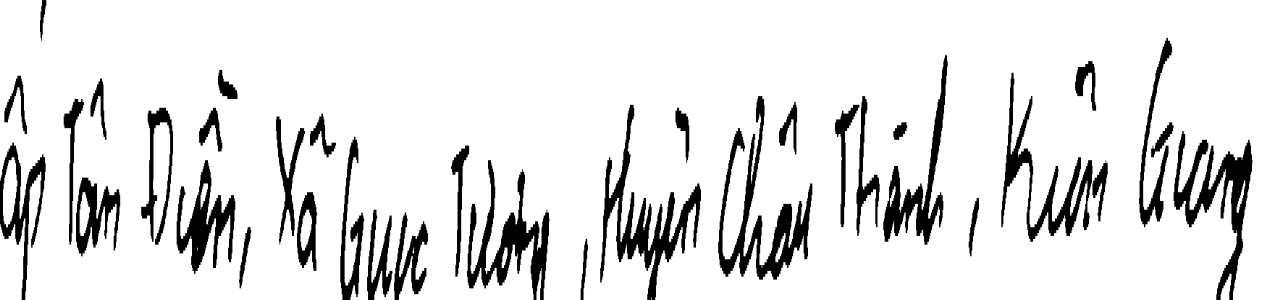 ấp Tân Điền, Xã Giục Tượng, Huyện Châu Thành, Kiên Giang